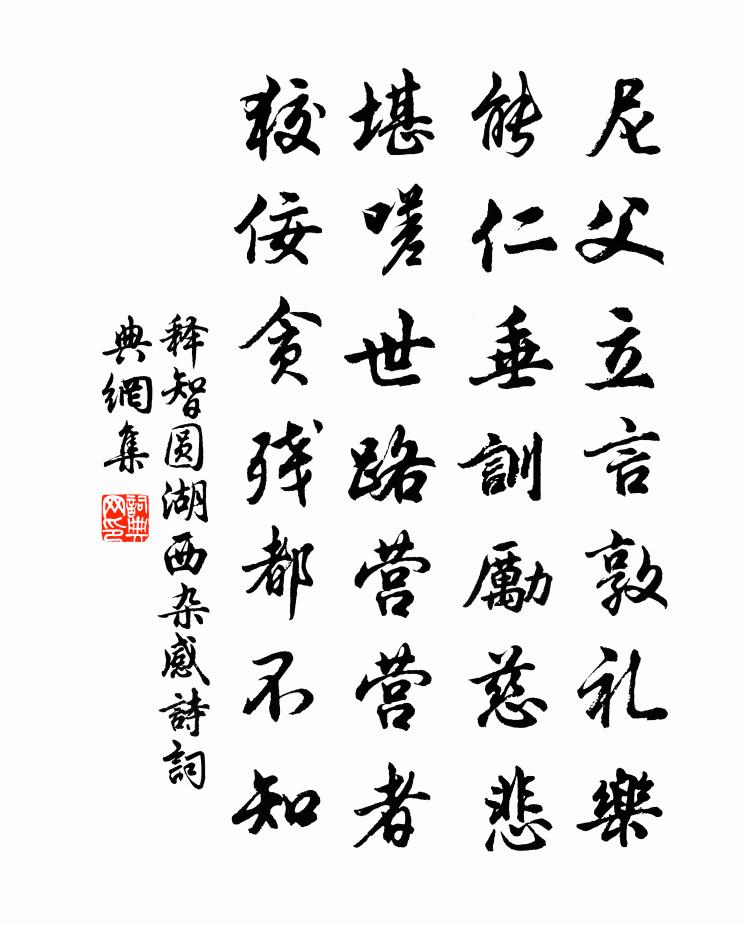 尼父立言敦礼樂
能仁垂訓勵慈悲
堪嗟世路营营者
狡佞贪残都不知
释智圆湖西杂感詩詞
典網集
詞典網印